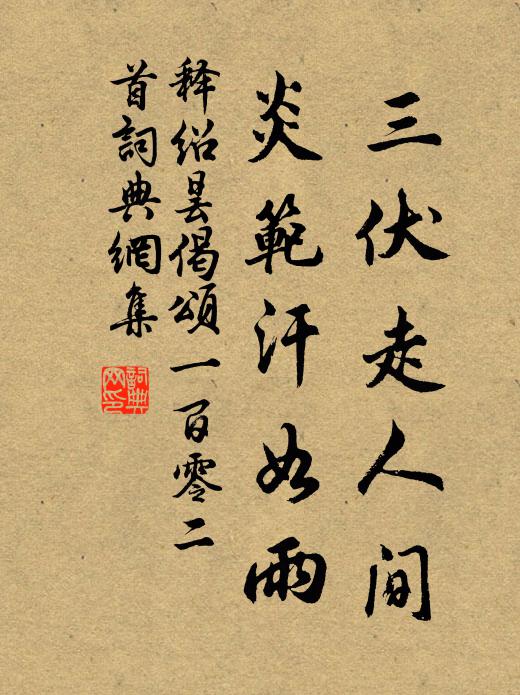 三伏走人间
炎範汗如雨
释绍昙偈頌一百零二
首詞典網集
詞典网印